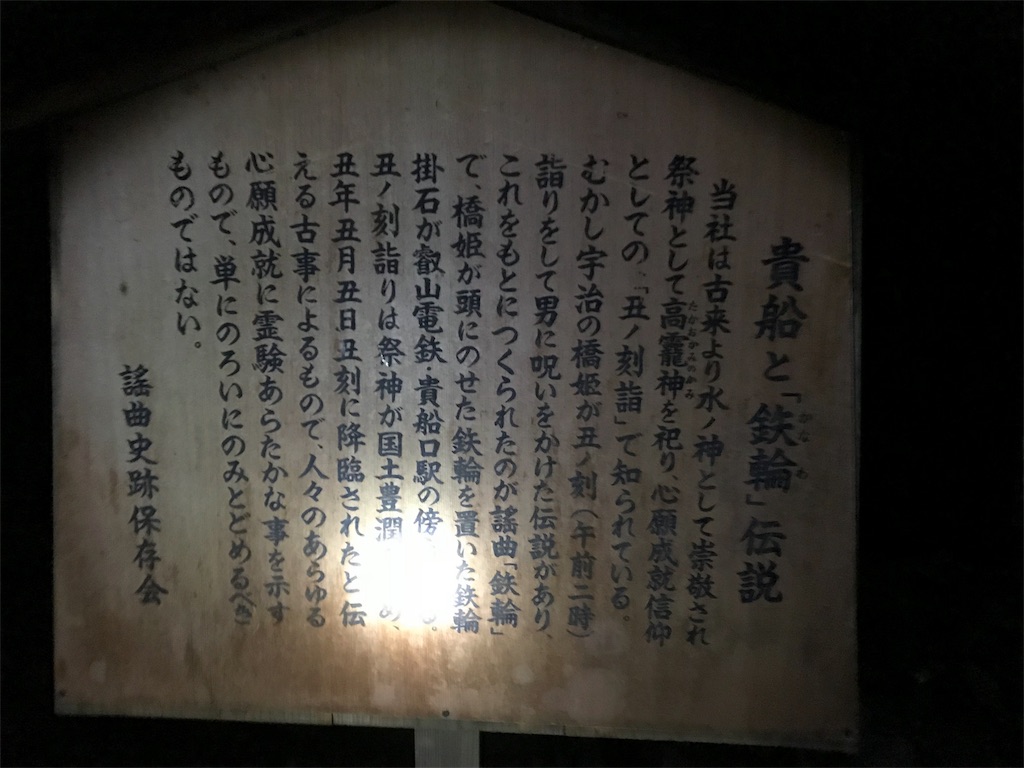 貴船と「鉄輪」伝説
かなわ
当社は古来より水ノ神として崇敬され
祭神として高龗神を祀り、心願成就信仰
たかおかみのかみ
としての「丑ノ刻詣」で知られている。
むかし宇治の橋姫が丑ノ刻(午前二時)
詣りをして男に呪いをかけた伝説があり、
これをもとにつくられたのが謡曲「鉄輪」
で、橋姫が頭にのせた鉄輪を置いた鉄輪
掛石が叡山電鉄・貴船口駅の傍
丑ノ刻詣りは祭神が国土豊潤 め、
丑年丑月丑日丑刻に降臨されたと伝
える古事によるもので、人々のあらゆる
心願成就に霊験あらたかな事を示す
もので、単にのろいにのみとどめるべき
ものではない。
謡曲史跡保存会